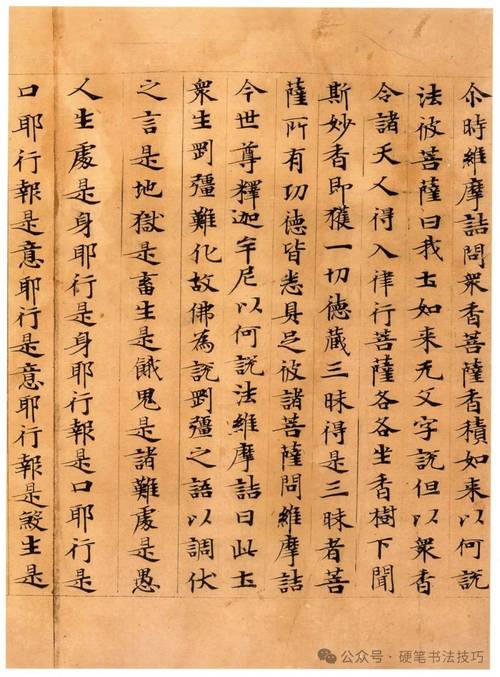 尒時維摩詰問衆香菩薩香積如来以何說
法彼菩薩曰我土如来无文字說但以衆香
令諸天人得入律行菩薩各各坐香樹下聞
斯妙香即獲一切德藏三昧得是三昧者菩
薩所有功德皆悉具足彼諸菩薩問維摩詰
今世尊釋迦牟尼以何說法維摩詰曰此土
衆生剛彊難化故佛為說剛彊之語以調伏
之言是地獄是畜生是餓鬼是諸難處是愚
人生處是身耶行是身耶行報是口耶行是
口耶行報是意耶行是意耶行報是煞生是
公众号·硬笔书法技巧